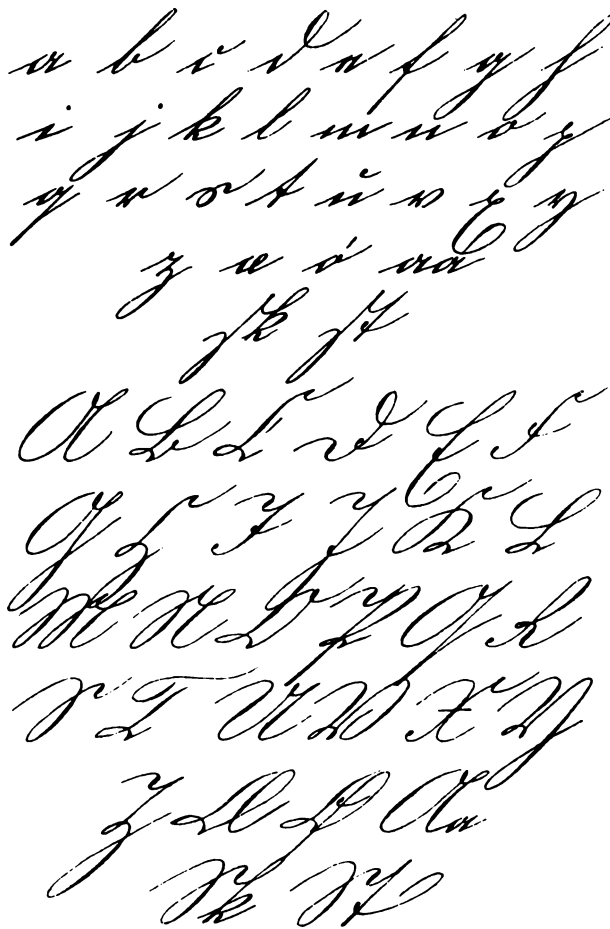 a b c d e f g h
i j k l m n o p
q r s t ŭ v x y
z æ ø aa
sk st
A B C D E F
G H I J K L
M N O P Q R
S T U V X Y
Z Æ Ø Aa
Sk St